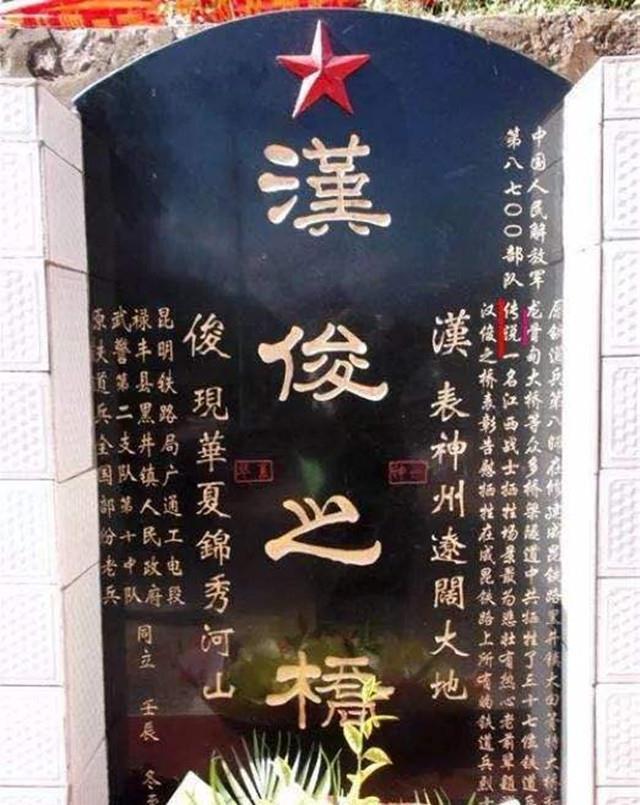 中国人民解放军
第八七〇〇部队
原铁道兵第八师在修建成昆铁路黑井镇大田箐特大桥
龙骨甸大桥等众多桥梁隧道中共牺牲了三十七位铁道兵
传说一名江西战士牺牲场景最为悲壮有热心老前辈题
汉俊之桥表彰告慰牺牲在成昆铁路上所有的铁道兵烈
漢表神州遼闊大地
漢俊之橋
俊現華夏錦秀河山
昆明铁路局广通工电段
禄丰县黑井镇人民政府
武警第二支队第十中队
原铁道兵全国部份老兵
同立 壬辰 冬